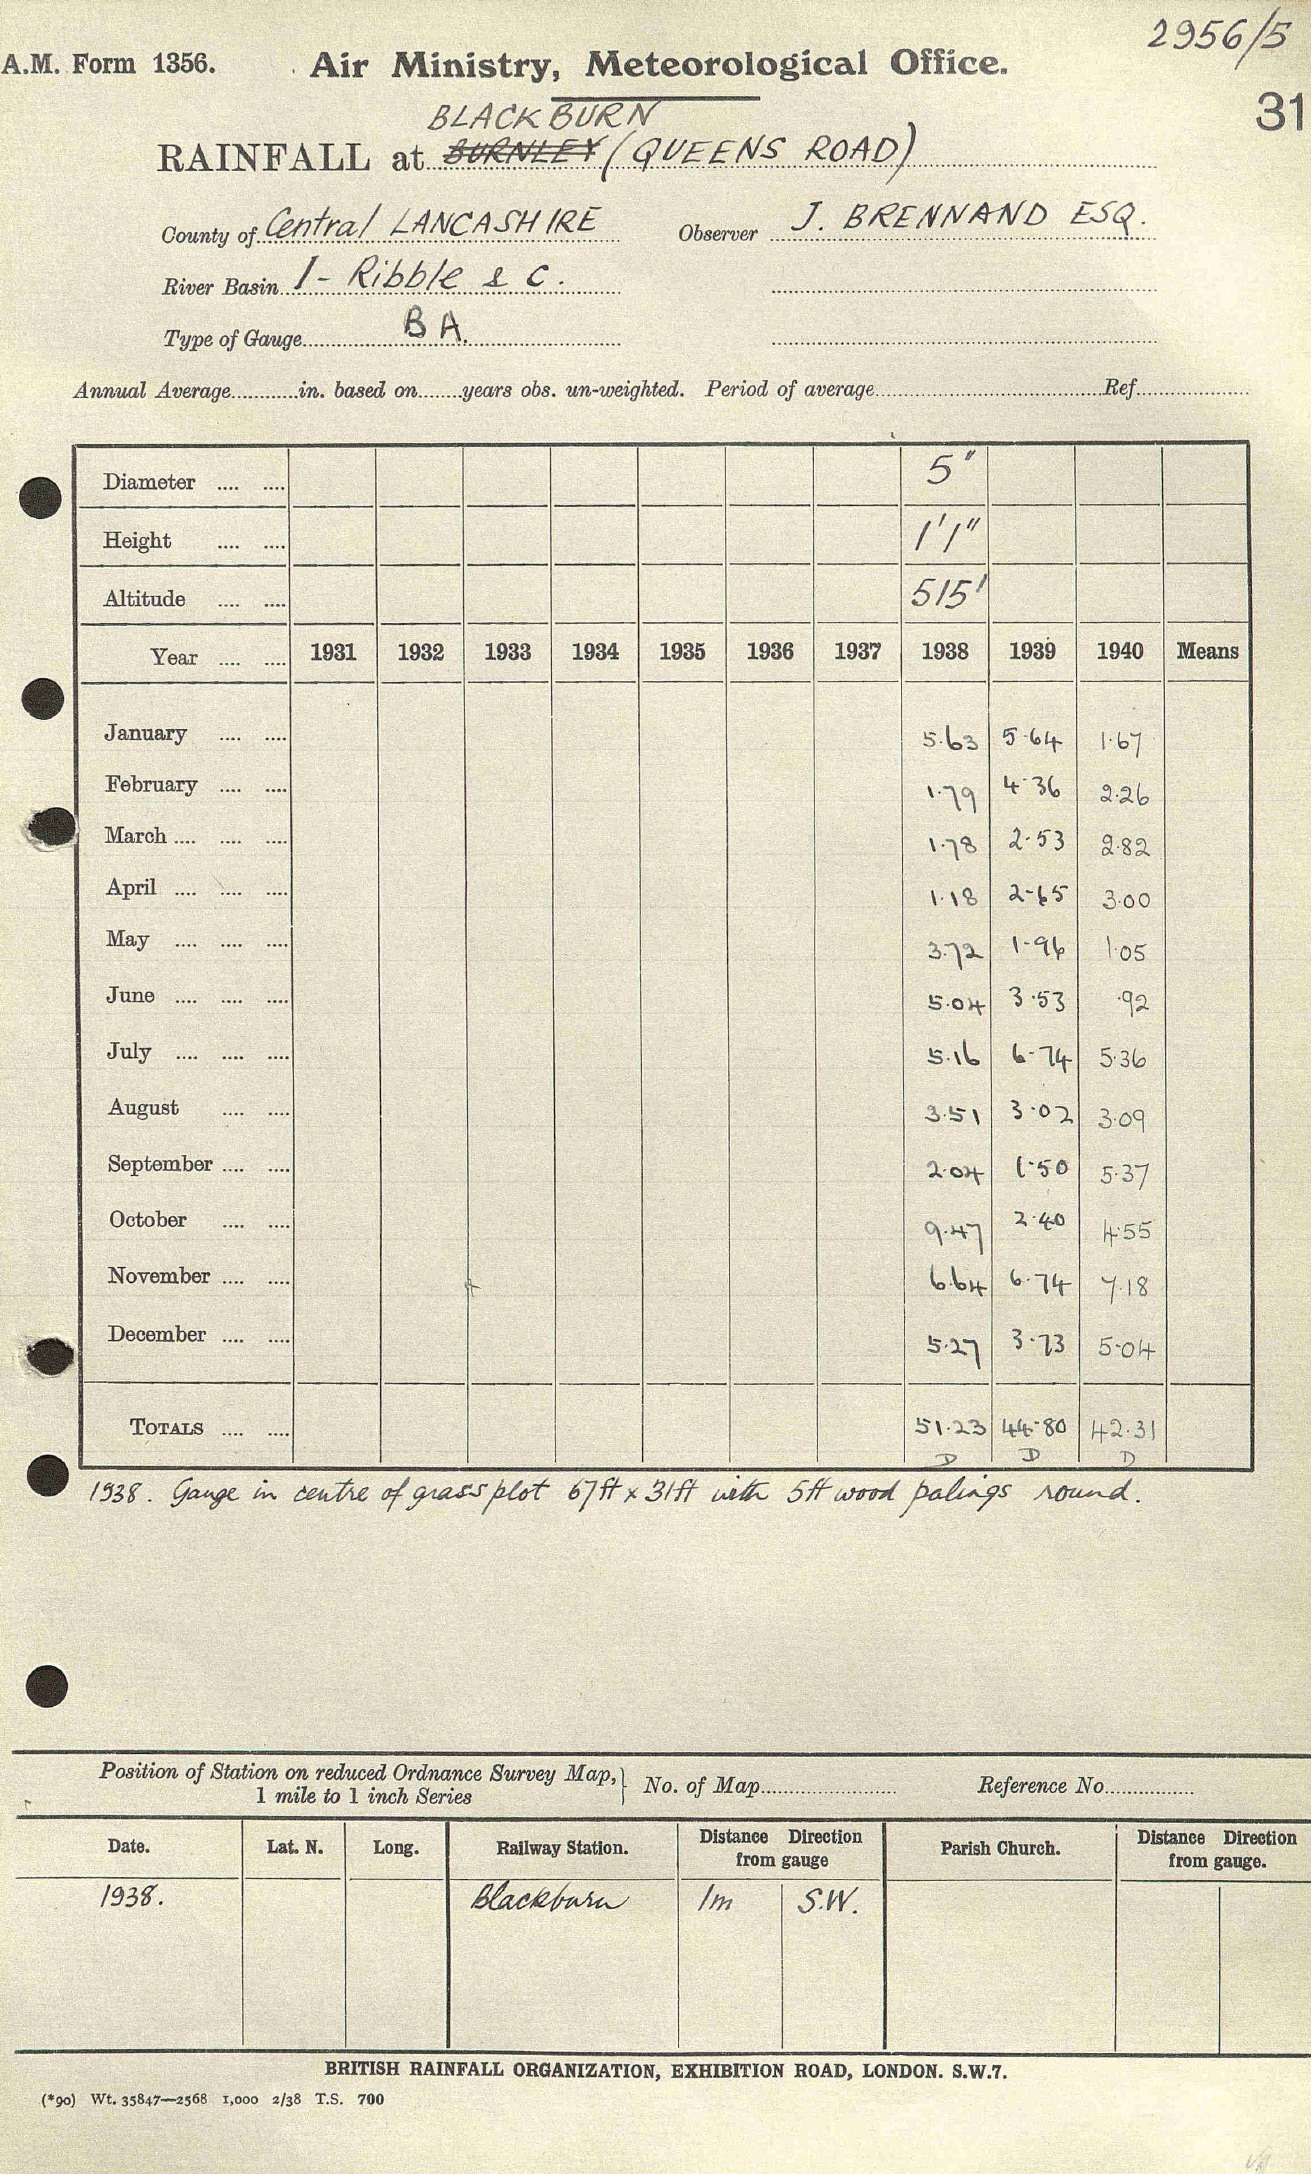 2956/5
A.M. Form 1356. Air Ministry, Meteorological Office.
31
BLACKBURN
RAINFALL at BURNLEY (QUEENS ROAD)
County of Central LANCASHIRE Observer J. BRENNAND ESQ.
River Basin 1- Ribble & c.
Type of Gauge BA.
Annual Average in. based on years obs. un-weighted. Period of average Ref.
Diameter .... .... 5"
Height .... .... 1'1"
Altitude .... .... 515'
Year .... .... 1931 1932 1933 1934 1935 1936 1937 1938 1939 1940 Means
January .... .... 5.63 5.64 1.67
February .... .... 1.79 4.36 2.26
March .... .... .... 1.78 2.53 2.82
April .... .... .... 1.18 2.65 3.00
May .... .... .... 3.72 1.96 1.05
June .... .... .... 5.04 3.53 .92
July .... .... .... 5.16 6.74 5.36
August .... .... 3.51 3.02 3.09
September .... .... 2.04 1.50 5.37
October .... .... 9.47 2.40 4.55
November .... .... 6.64 6.74 7.18
December .... .... 5.27 3.73 5.04
TOTALS .... .... 51.23 44.80 42.31
D D D
1938. Gauge in centre of grass plot 67ft x 31ft with 5ft wood palings round.
Position of Station on reduced Ordnance Survey Map, 1 mile to 1 inch Series } No. of Map Reference No.
Date. Lat. N. Long. Railway Station. Distance Direction from gauge Parish Church. Distance Direction from gauge.
1938. Blackburn 1m S.W.
BRITISH RAINFALL ORGANIZATION, EXHIBITION ROAD, LONDON. S.W.7.
(*90) Wt. 35847—2568 1,000 2/38 T.S. 700